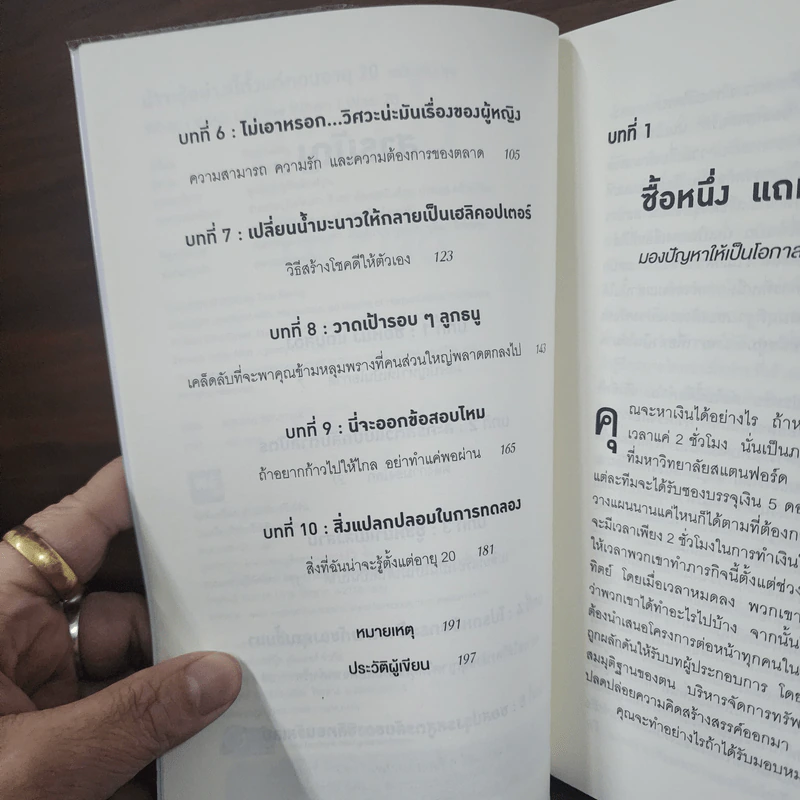 บทที่ 6 : ไม่เอาหรอก...วิศวะน่ะมันเรื่องของผู้หญิง
ความสามารถ ความรัก และความต้องการของตลาด 105
บทที่ 7 : เปลี่ยนน้ำมะนาวให้กลายเป็นเฮลิคอปเตอร์
วิธีสร้างโชคดีให้ตัวเอง 123
บทที่ 8 : วาดเป้ารอบ ๆ ลูกธนู
เคล็ดลับที่จะพาคุณข้ามหลุมพรางที่คนส่วนใหญ่พลาดตกลงไป 143
บทที่ 9 : นี่จะออกข้อสอบไหม
ถ้าอยากก้าวไปให้ไกล อย่าทำแค่พอผ่าน 165
บทที่ 10 : สิ่งแปลกปลอมในการทดลอง
สิ่งที่ฉันน่าจะรู้ตั้งแต่อายุ 20 181
หมายเหตุ 191
ประวัติผู้เขียน 197
บทที่ 1
ซื้อหนึ่ง
มองปัญหาให้เป็นโอกาส
คุณจะหาเงินได้อย่างไร
เวลาแค่ 2 ชั่วโมง นั่นเป็น
ที่มหาวิทยาลัยสแตนฟอร์ด
แต่ละทีมจะได้รับซองบรรจุเงิน 5
วางแผนนานแค่ไหนก็ได้ตามที่ต้อง
จะมีเวลาเพียง 2 ชั่วโมงในการทำเงิน
ให้เวลาพวกเขาทำภารกิจนี้ตั้งแต่ช่วง
ทิตย์ โดยเมื่อเวลาหมดลง พวกเขา
ว่าพวกเขาได้ทำอะไรไปบ้าง จากนั้น
ต้องนำเสนอโครงการต่อหน้าทุกคนใน
ถูกผลักดันให้รับบทผู้ประกอบการ โดย
สมมุติฐานของตน บริหารจัดการทรัพ
ปลดปล่อยความคิดสร้างสรรค์ออกมา
คุณจะทำอย่างไรถ้าได้รับมอบหม